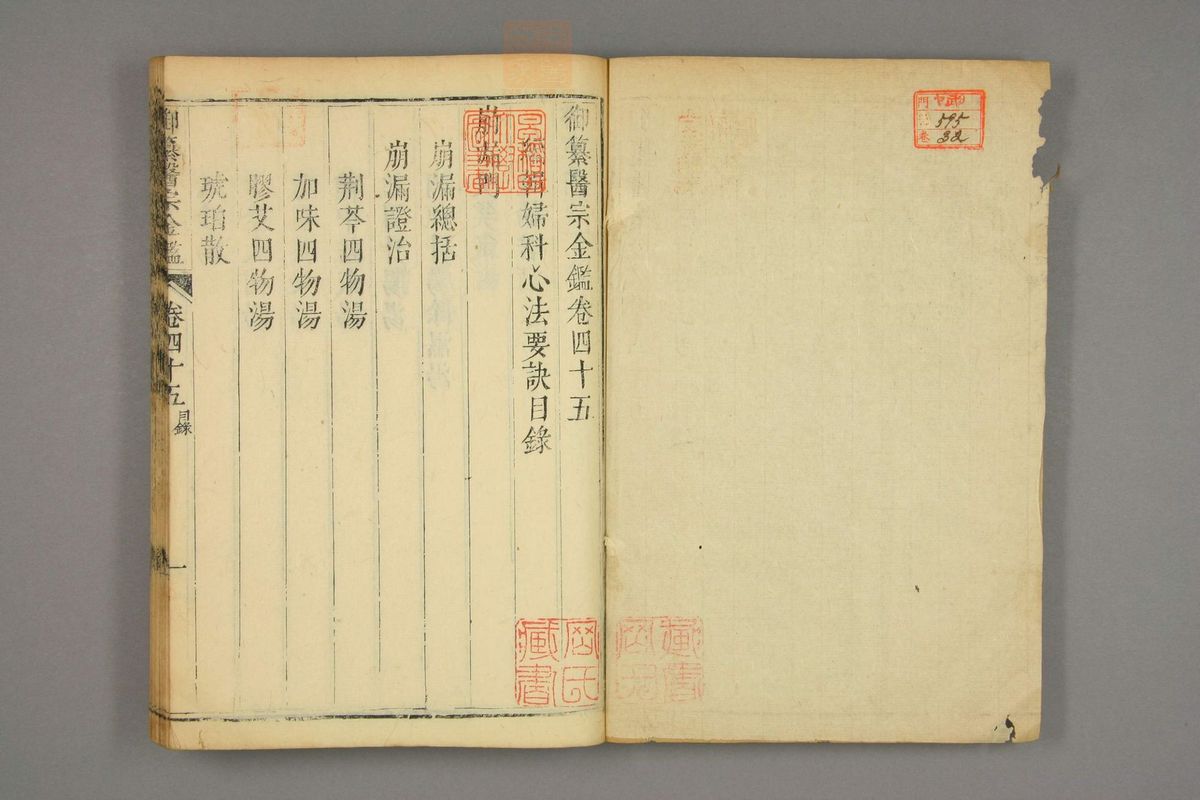 御纂醫宗金鑑卷四十五
編輯婦科心法要訣目錄
崩漏門
崩漏總括
崩漏證治
荆芩四物湯
加味四物湯
膠艾四物湯
琥珀散
御纂醫宗金鑑 卷四十五 目錄 一
藏書
595
32
門
卷